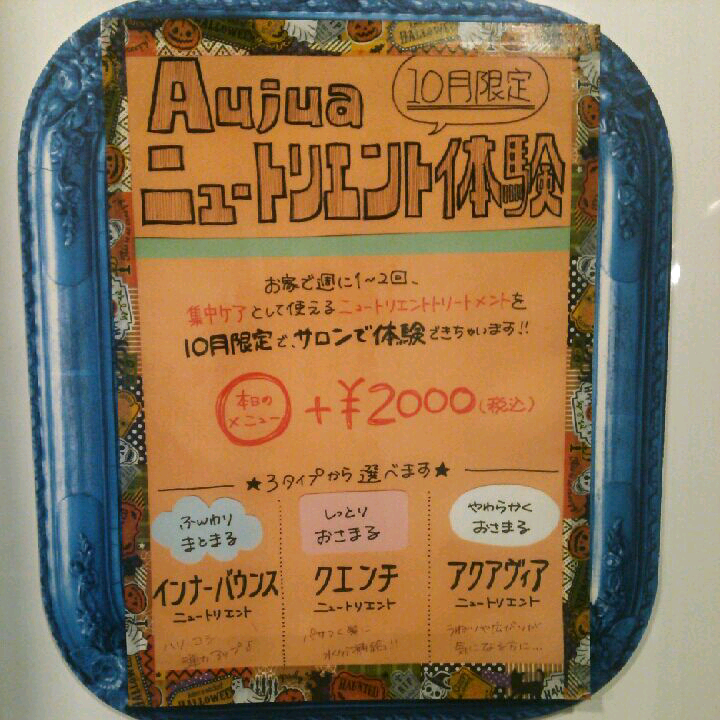 Aujua
10月限定
ニュートリエント体験
お家で週に1~2回、
集中ケアとして使えるニュートリエントトリートメントを
10月限定で、サロンで体験できちゃいます!!
本日の
メニュー
+¥2000(税込)
★3タイプから選べます★
ふんわり
まとまる
インナーバウンス
ニュートリエント
ハリ・コシ
しっとり
おさまる
クエンチ
ニュートリエント
パサつく髪に
水分補給!!
やわらかく
おさまる
アクアヴィア
ニュートリエント
うねりや広がりが
気になる方に…
HALLOWEEN
HAUNTED